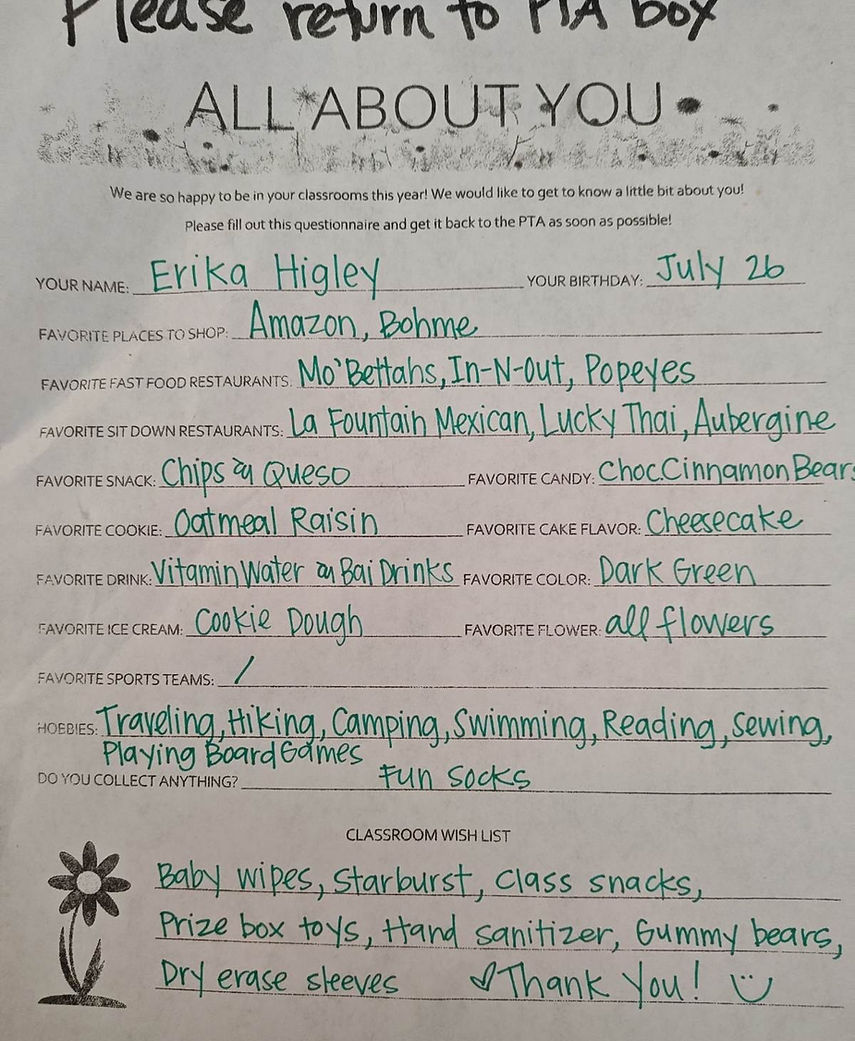 Please return to PTA box
ALL ABOUT YOU
We are so happy to be in your classrooms this year! We would like to get to know a little bit about you!
Please fill out this questionnaire and get it back to the PTA as soon as possible!
YOUR NAME: Erika Higley YOUR BIRTHDAY: July 26
FAVORITE PLACES TO SHOP: Amazon, Bohme
FAVORITE FAST FOOD RESTAURANTS: Mo'Bettahs, In-N-Out, Popeyes
FAVORITE SIT DOWN RESTAURANTS: La Fountain Mexican, Lucky Thai, Aubergine
FAVORITE SNACK: Chips & Queso FAVORITE CANDY: Choc. Cinnamon Bears
FAVORITE COOKIE: Oatmeal Raisin FAVORITE CAKE FLAVOR: Cheesecake
FAVORITE DRINK: Vitamin Water & Bai Drinks FAVORITE COLOR: Dark Green
FAVORITE ICE CREAM: Cookie Dough FAVORITE FLOWER: all flowers
FAVORITE SPORTS TEAMS: /
HOBBIES: Traveling, Hiking, Camping, Swimming, Reading, Sewing,
Playing Board Games
DO YOU COLLECT ANYTHING? Fun Socks
CLASSROOM WISH LIST
Baby wipes, Starburst, Class snacks,
Prize box toys, Hand sanitizer, Gummy bears,
Dry erase sleeves ♡Thank You! Ü